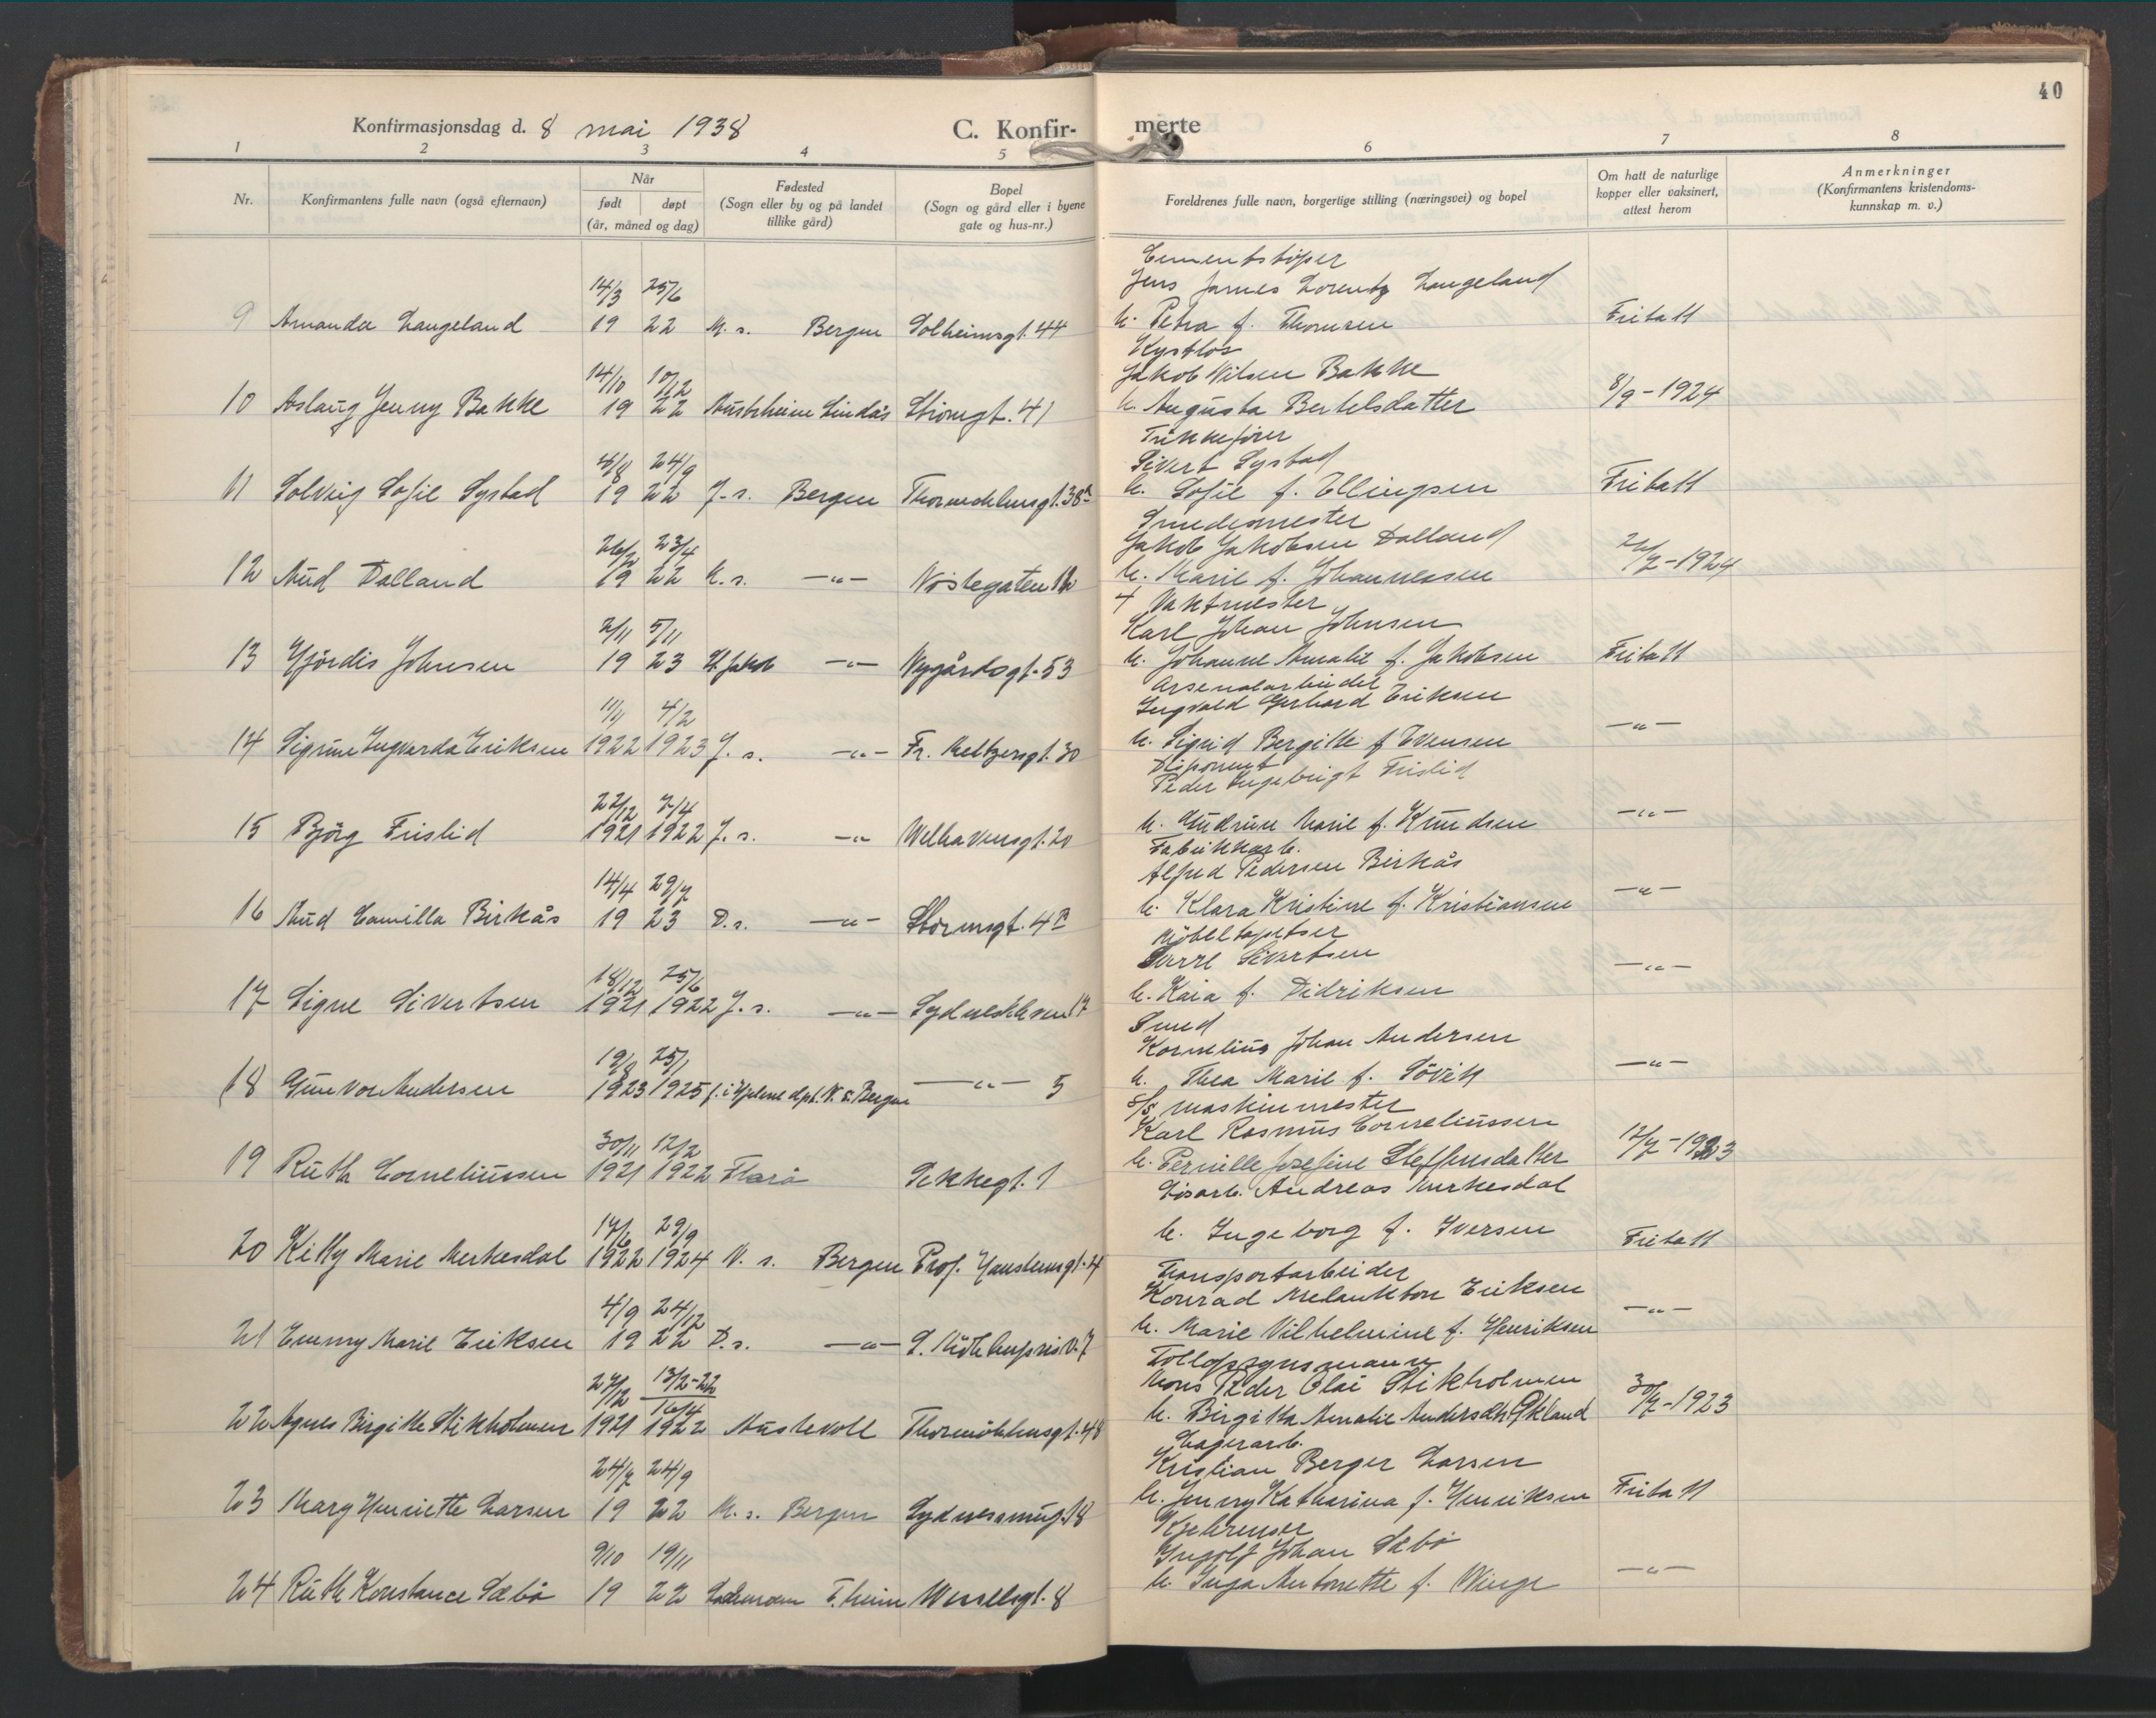 40
Konfirmasjonsdag d. 8 mai 1938
C. Konfir-
merte
1 2 3 4 5 6 7 8
Nr.
Konfirmantens fulle navn (også efternavn)
Når
født døpt
(år, måned og dag)
Fødested
(Sogn eller by og på landet
tillike gård)
Bopel
(Sogn og gård eller i byene
gate og hus-nr.)
Foreldrenes fulle navn, borgertige stilling (næringsvei) og bopel
Om hatt de naturlige
kopper eller vaksinert,
attest herom
Anmerkninger
(Konfirmantens kristendoms-
kunnskap m. v.)
Cementstøper
14/3 25/6 Jens James Lorentz Langeland
9 Amanda Langeland 19 22 M. s. Bergen Solheimsgt. 44 h. Petra f. Thomsen Fritatt
Kystlos
14/10 10/12 Jakob Nilsen Bakke
10 Aslaug Jenny Bakke 19 22 Austrheim Lindås Strømgt. 41 h. Augusta Bertelsdatter 8/9-1924
Trikkefører
4/8 24/9 Sivert Systad
11 Solveig Sofie Systad 19 22 J. s. Bergen Thormøhlensgt. 38a h. Sofie f. Ellingsen Fritatt
Smedemester
26/2 23/4 Jakob Jakobsen Dalland
12 Aud Dalland 19 22 K. s. —"— Nøstegaten h. Marie f. Johannessen -1924
+ Vaktmester
2/11 5/11 Karl Johan Johnsen
13 Hjördis Johnsen 19 23 St. Jakob —"— Nygårdsgt. 53 h. Johanne Amalie f. Jakobsen Fritatt
Arsenalarbeider
11/11 4/2 Ingvald Gerhard Eriksen
14 Sigrun Ingvarda Eriksen 1922 1923 J. s. —"— Fr. Meltzersgt. 30 h. Sigrid Bergitte f. Evensen —"—
Disponent
22/12 7/4 Peder Ingebrigt Frislid
15 Björg Frislid 1921 1922 J. s. —"— Welhavensgt. 20 h. Gudrun Marie f. Knudsen —"—
Fabrikkarb.
14/4 29/7 Alfred Pedersen Birkås
16 Aud Camilla Birkås 19 23 D. s. —"— Stormsgt. 4 h. Klara Kristine f. Kristiansen —"—
Möbeltapetser
18/12 25/6 Sverre Sivertsen
17 Signe Sivertsen 1921 1922 J. s. —"— Sydneskleven 17 h. Kaia f. Didriksen —"—
Smed
19/8 25/1 Kornelius Johan Andersen
18 Gunvor Andersen 1923 1925 f. i Hjelme dpt. N. s. Bergen —"— 5 h. Thea Marie f. Sövik —"—
s/s maskinmester
30/11 12/2 Karl Rasmus Corneliussen
19 Ruth Corneliussen 1921 1922 Florø Sekkegt. 1 h. Pernille Josefine Steffensdatter 12/7-1923
17/6 29/9 Løsarb. Andreas Merkesdal
20 Kitty Marie Merkesdal 1922 1924 N. s. Bergen Prof. Hansteensgt. 4 h. Ingeborg f. Iversen Fritatt
Transportarbeider
4/9 24/12 Konrad Melankton Eriksen
21 Emmy Marie Eriksen 19 22 D. s. —"— D. Krohnengsv. 7 h. Marie Vilhelmine f. Henriksen —"—
Tollopsynsmann
27/12 13/2-22 16/4 Mons Peder Olai Stikholmen
22 Agnes Birgitte Stikholmen 1921 1922 Austevoll Thormöhlensgt. 48 h. Birgitta Amalie Andersdtr. Økland 30/7-1923
Lagerarb.
24/7 24/9 Kristian Berger Larsen
23 Mary Henriette Larsen 19 22 M. s. Bergen Sydnessmug. 18 h. Jenny Katharina f. Henriksen Fritatt
Kjelrenser
9/10 19/11 Ingolf Johan Sæbø
24 Ruth Konstance Sæbø 19 22 Lademoen T.heim Wesselsgt. 8 h. Inga Antonette f. Winge —"—